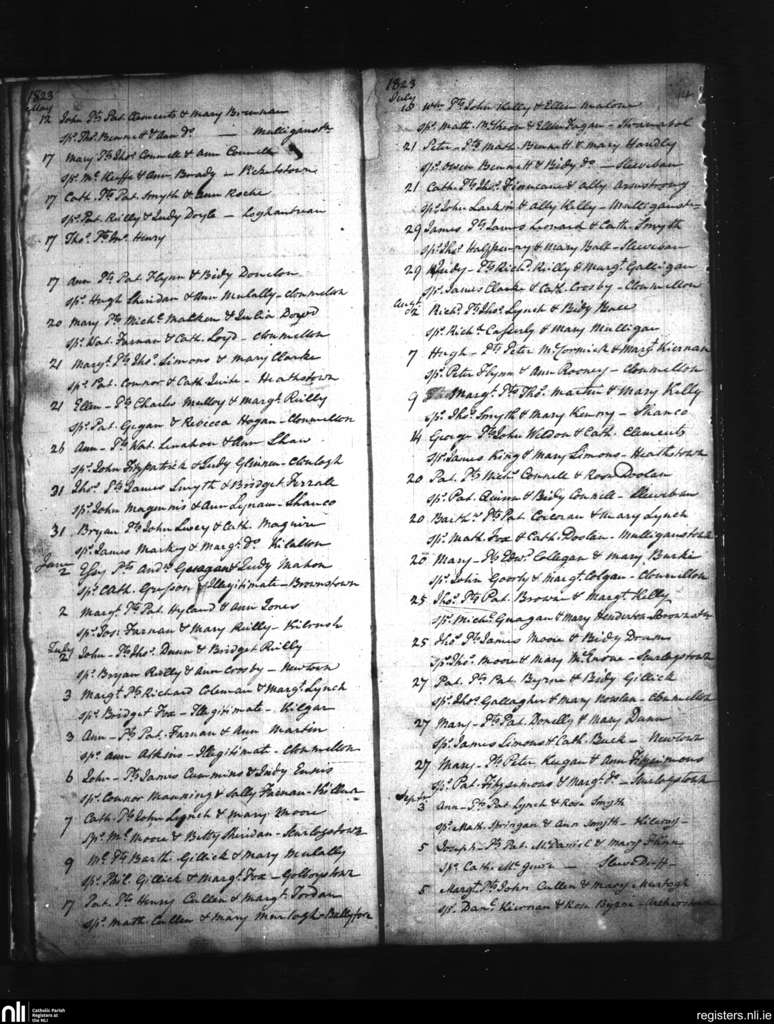 1823
May
12 John Ps Pat Clements & Mary Brennan
sps Thos Bennett & Ann do — Mulliganstn
17 Mary Ps Thos Connell & Ann Connell
sps Ml Keeffe & Ann Brady —
17 Cath. Ps Pat. Smyth & Ann Roche
sps Pat Reilly & Judy Doyle —
17 Thos Ps Henry
17 Ann Ps Pat Flynn & Bidy Donelon
sps Hugh Sheridan & Ann Mulally - Clonmellon
20 Mary Ps Michl & Julia
sps Nat. Farnan & Cath. Loyd - Clonmellon
21 Margt Ps Thos Simons & Mary Clarke
sps Pat. Connor & Cath - Heathstown
21 Ellen - Ps Charles Mulloy & Margt Reilly
sps Pat. Gegan & Rebecca Hogan - Clonmellon
26 Ann - Ps Nat. Linahan & Ann Shaw
sps John Fitzpatrick & Judy
31 Thos Ps James Smyth & Bridget Ferrale
sps John Maginnis & Ann Lynam - Shanco
31 Bryan Ps John & Cath. Maguire
sps James Markey & Margt do Killallon
June
2 Ps Andw Geragan & Judy Mahon
sps Cath. Illegitimate - Brownstown
2 Margt Ps Pat Hyland & Ann Jones
sps Jos. Farnan & Mary Reilly - Kilrush
July
2 John - Ps Thos Dunn & Bridget Reilly
sps Bryan Reilly & Ann Crosby - Newtown
3 Margt Ps Richard Coleman & Margt Lynch
sps Bridget Fox - Illegitimate - Kilgar
3 Ann - Ps Pat. Farnan & Ann Martin
sps Ann Atkins - Illegitimate - Clonmellon
6 John - Ps James Cummins & Judy Ennis
sps Connor Manning & Sally Farnan -
7 Cath. Ps John Lynch & Mary Moore
sps Ml Moore & Betty Sheridan - Sturlogstown
9 Ml Ps Barth. Gillick & Mary Mulally
sps Phil. Gillick & Margt Fox -
17 Pat. Ps Henry Cullen & Margt Jordan
sps Math Cullen & Mary Murtogh - Ballyfore
1823
July
18 Wm Ps John Kelly & Ellen Malone
sps Matt. & Ellen Fagan -
21 Peter - Ps Math Bennett & Mary Handly
sps Owen Bennett & Bidy do - Sleveban
21 Cath. Ps Thos & Ally Armstrong
sps John Larkin & Ally Kelly - Mulliganstn
29 James Ps James Leonard & Cath. Smyth
sps Thos Halfpenny & Mary Ball - Sleveban
29 Judy - Ps Richd Reilly & Margt Galligan
sps James Clarke & Cath. Crosby - Clonmellon
Augt
2 Richd Ps Thos Lynch & Bidy Ball
sps Richd Casserly & Mary Mulligan
7 Hugh - Ps Peter McCormick & Margt Kiernan
sps Peter Flynn & Ann Rooney - Clonmellon
9 Margt Ps Thos Martin & Mary Kelly
sps Thos Smyth & Mary Kenny - Shanco
14 George Ps John Weldon & Cath. Clements
sps James King & Mary Simons - Heathstown
20 Pat. Ps Michl Connell & Rose Doolan
sps Pat. Quinn & Bidy Connell - Sleveban
20 Barthw Ps Pat Corcoran & Mary Lynch
sps Math Fox & Cath. Doolan - Mulliganstown
20 Mary - Ps Edwd Collegan & Mary Burke
sps John Goorty & Margt Colgan - Clonmellon
25 Thos Ps Pat. Brown & Margt Kelly
sps Michl Geagan & Mary Henderson Brownstn
25 Thos Ps James Moore & Bidy Downs
sps Thos Moore & Mary McEnroe - Sturlogstown
27 Pat. Ps Pat Byrne & Bidy Gillick
sps Thos Gallagher & Mary Nowlan - Clonmellon
27 Mary - Ps Pat Donelly & Mary Dunn
sps James Simons & Cath. Buck - Newtown
27 Mary - Ps Peter Keegan & Ann Fitzsimons
sps Pat. Fitzsimons & Margt do - Sturlogstown
Sepr
3 Ann - Ps Pat Lynch & Rose Smyth
sps Math Springan & Ann Smyth -
5 Joseph - Ps Pat McDaniel & Mary Flynn
sps Cath. McGuire —
5 Margt Ps John Cullen & Mary Murtogh
sps Danl Kiernan & Rose Byrne -
nli
Catholic Parish
Registers at
the NLI
registers.nli.ie